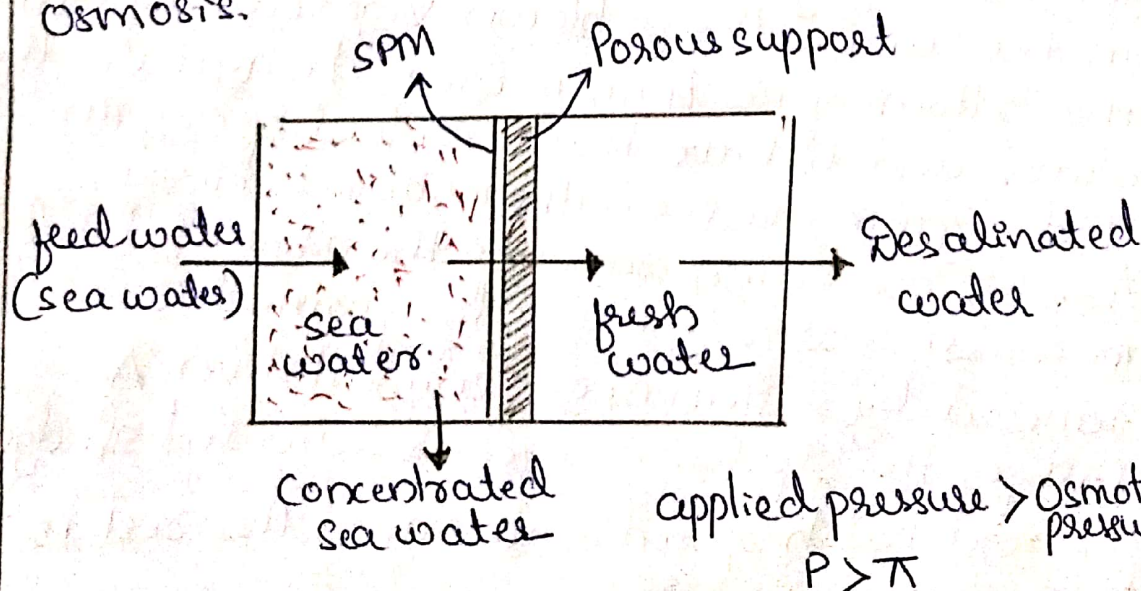 Osmosis.
SPM
Porous support
feed water
(sea water)
sea
water
fresh
water
Desalinated
water
Concentrated
Sea water
applied pressure > Osmot
pressu
P > π